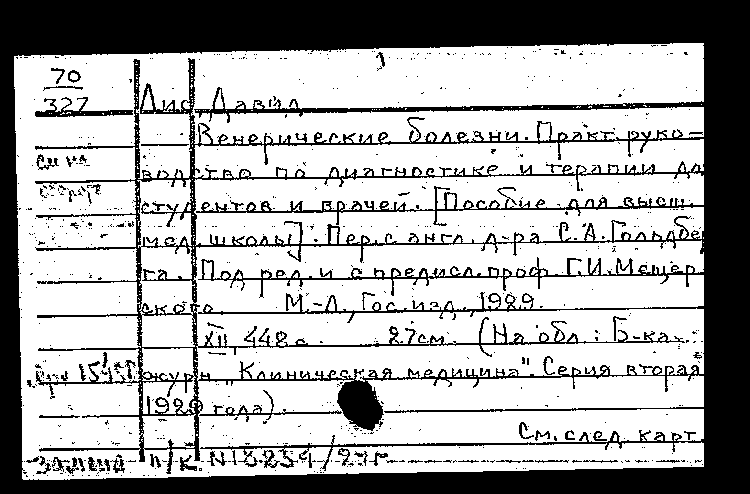 70
327
Лис, Давид
Венерические болезни. Практ. руко=
водство по диагностике и терапии дл
см на
обороте
студентов и врачей. [Пособие для высш.
мед. школы]. Пер. с англ. д-ра С.А. Гольдбе
га. Под ред. и с предисл. проф. Г.И. Мещер
ского. М.-Л., Гос. изд., 1929.
XII, 448 с. 27см. (На обл.: Б-ка
журн. "Клиническая медицина". Серия вторая
1929 года).
См. след. карт.
замена п/к N18234/